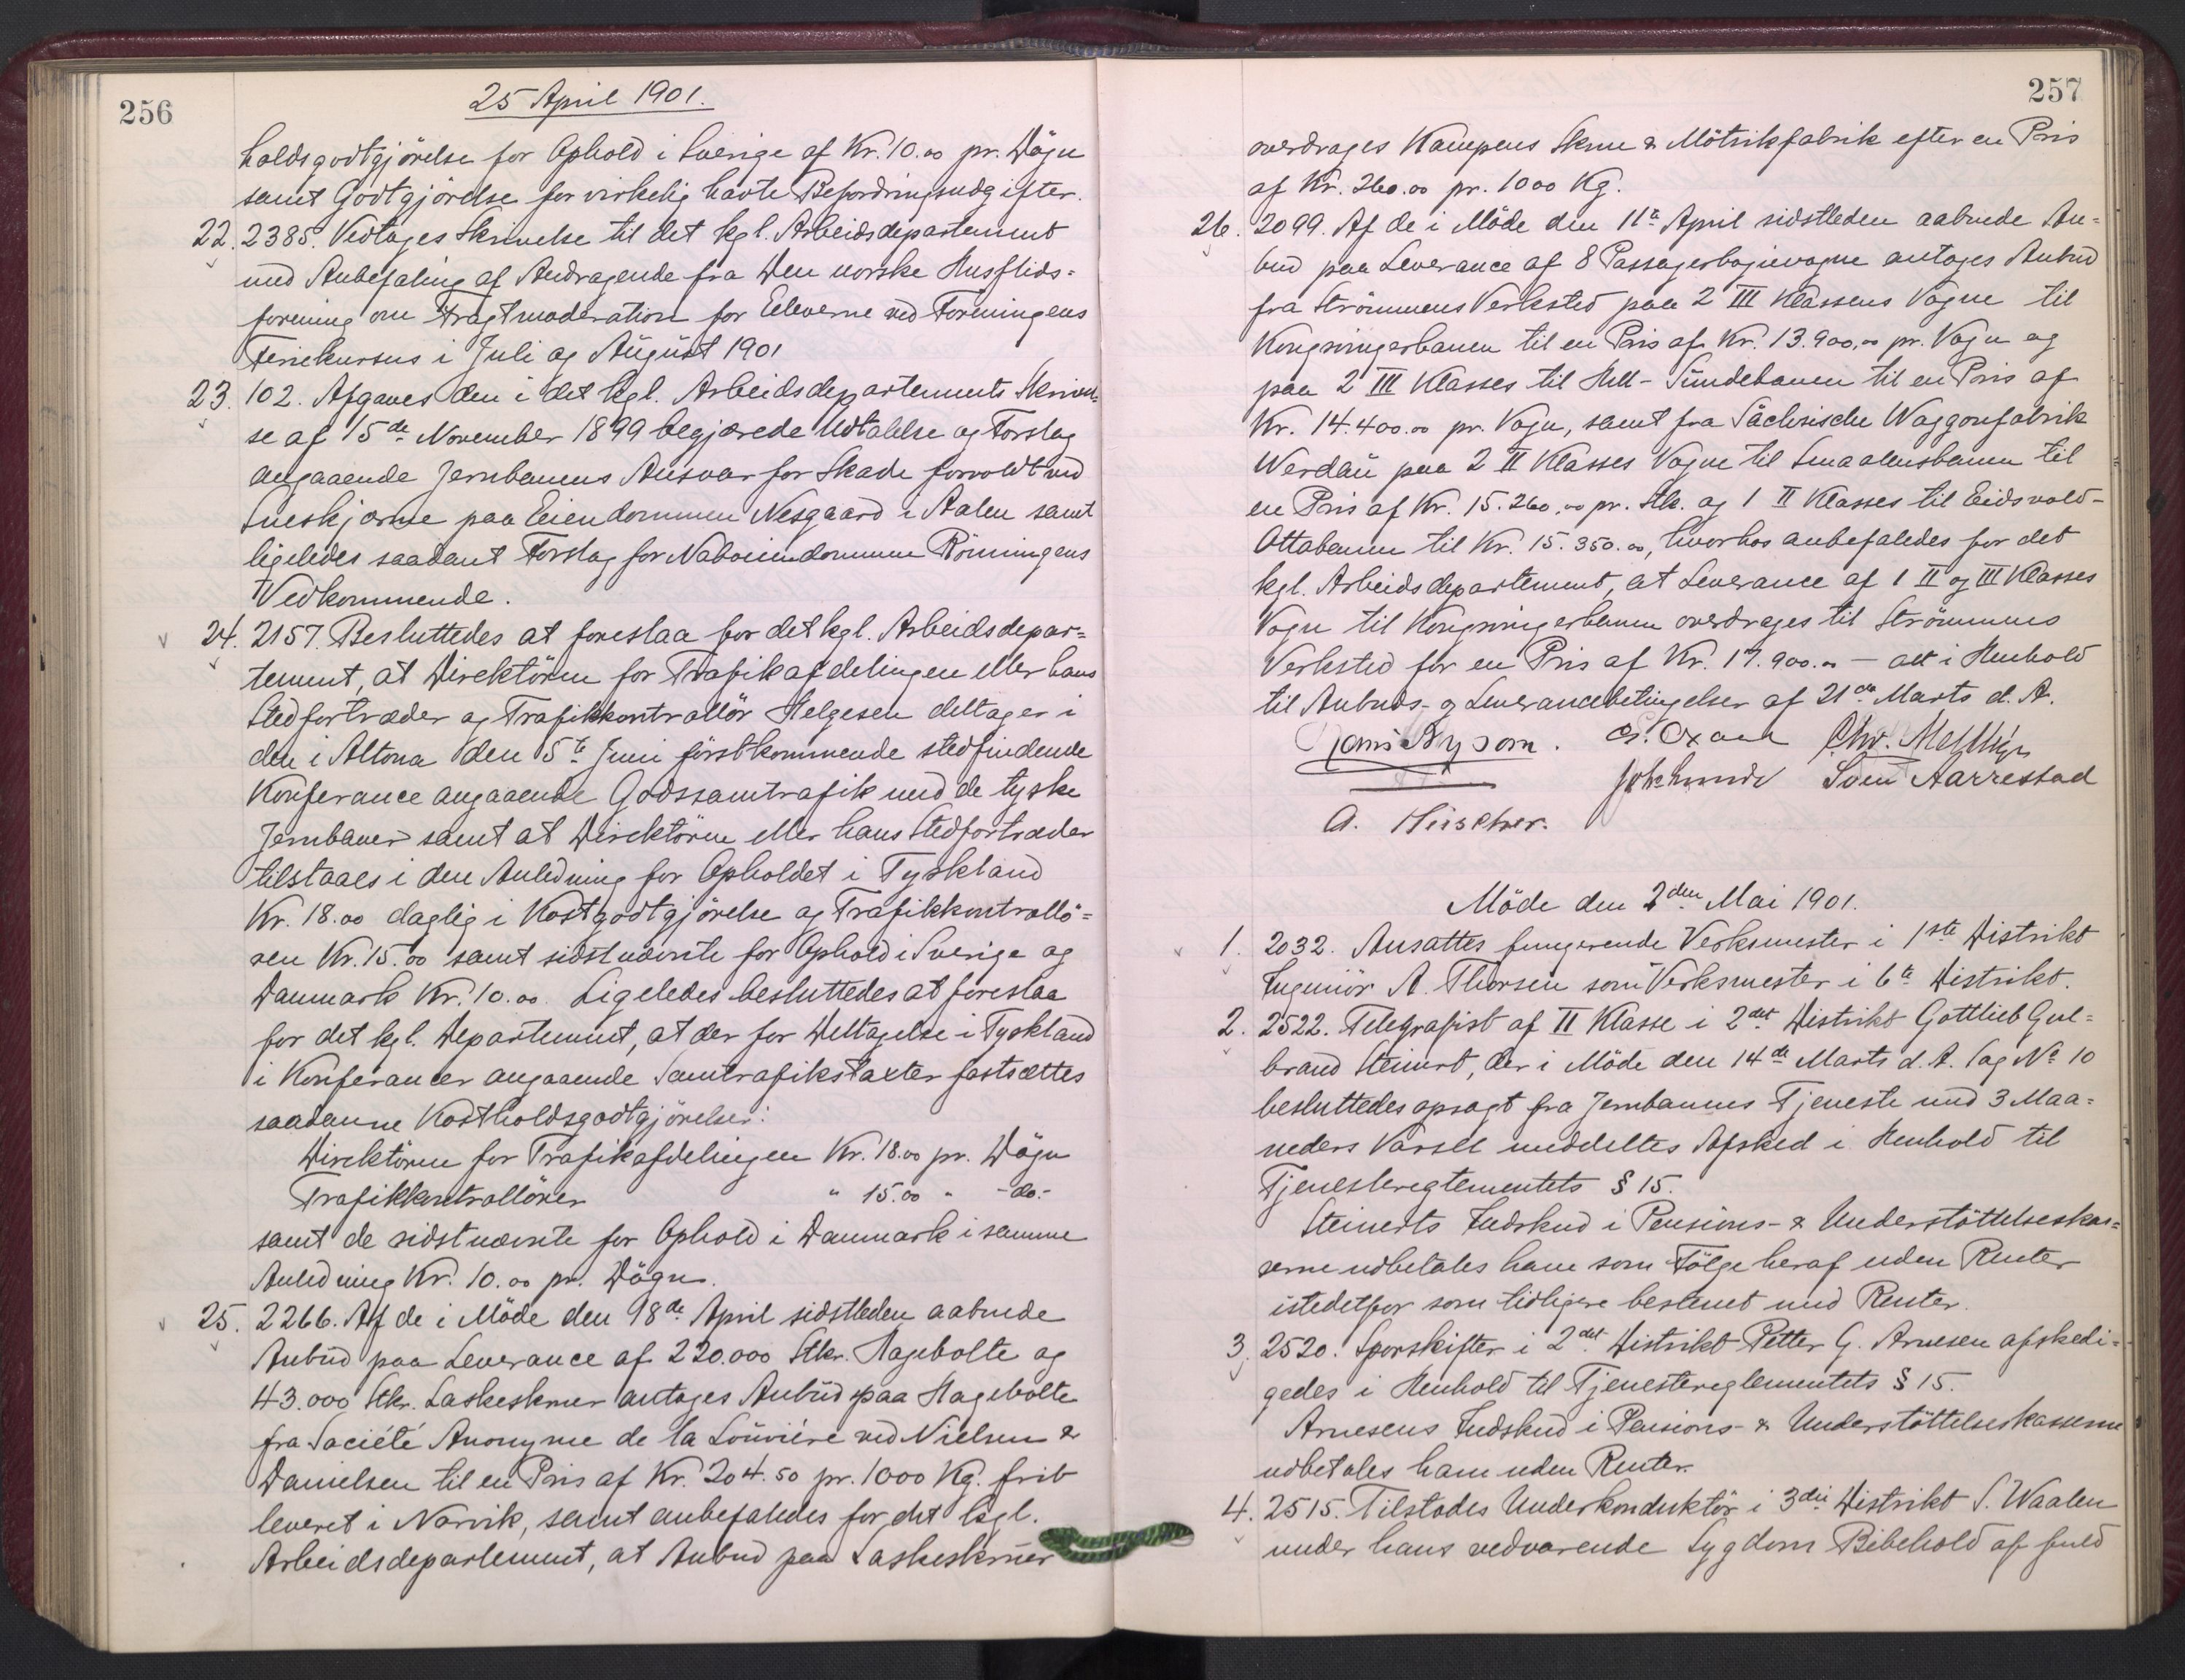 256
25 April 1901.
holdsgodtgjörelse for Ophold i Sverige af Kr. 10.00 pr. Dögn
samt Godtgjörelse for virkelig havte Befordringsudgifter.
22. 2385. Vedtoges Skrivelse til det kgl. Arbeidsdepartement
med Anbefaling af Andragende fra Den norske Husflids=
forening om Fragtmoderation for Eleverne ved Foreningens
Feriekursus i Juli og August 1901
23. 102. Afgaves den i det kgl. Arbeidsdepartements Skrivel=
se af 15de November 1899 begjærede Udtalelse og Forslag
angaaende Jernbanens Ansvar for Skade forvoldt ved
Sneskjærme paa Eiendommen Nesgaard i Aalen samt
ligeledes saadant Forslag for Naboeiendommen Rönningens
Vedkommende.
24. 2157. Besluttedes at foreslaa for det kgl. Arbeidsdepar=
tement, at Direktören for Trafikafdelingen eller hans
Stedfortræder og Trafikkontrollör Helgesen deltager i
den i Altona den 5te Juni förstkommende stedfindende
Konferance angaaende Godssamtrafik med de tyske
Jernbaner samt at Direktören eller hans Stedfortræder
tilstaaes i den Anledning for Opholdet i Tyskland
Kr. 18.00 daglig i Kostgodtgjörelse og Trafikkontrollö=
ren Kr. 15.00 samt sidstnævnte for Ophold i Sverige og
Danmark Kr. 10.00. Ligeledes besluttedes at foreslaa
for det kgl. Departement, at der for Deltagelse i Tyskland
i Konferancer angaaende Samtrafikstaxter fastsættes
saadanne Kostholdsgodtgjörelser:
Direktören for Trafikafdelingen Kr. 18.00 pr. Dögn
Trafikkontrollören " 15.00 " -do.-
samt de sidstnævnte for Ophold i Danmark i samme
Anledning Kr. 10.00 pr. Dögn.
25. 2266. Af de i Möde den 18de April sidstleden aabnede
Anbud paa Leverance af 220.000 Stkr. Hagebolte og
43.000 Stkr. Laskeskruer antages Anbud paa Hagebolte
fra Société Anonyme de la Louviére ved Nielsen &
Danielsen til en Pris af Kr. 204.50 pr. 1000 Kg. frit
leveret i Narvik, samt anbefaledes for det kgl.
Arbeidsdepartement, at Anbud paa Laskeskruer
257
overdrages Kampens Skrue & Mötrikfabrik efter en Pris
af Kr. 260.00 pr. 1000 Kg.
26. 2099. Af de i Möde den 11te April sidstleden aabnede An=
bud paa Leverance af 8 Passagerbogievogne antoges Anbud
fra Strömmens Verksted paa 2 III Klassens Vogne til
Kongsvingerbanen til en Pris af Kr. 13.900,00 pr. Vogn og
paa 2 III Klasses til Hell-Sundebanen til en Pris af
Kr. 14.400.00 pr. Vogn, samt fra Sächsische Waggonfabrik
Werdau paa 2 II Klasses Vogne til Smaalensbanen til
en Pris af Kr. 15.260,00 pr. Stk. og 1 II Klasses til Eidsvold-
Ottabanen til Kr. 15.350.00, hvorhos anbefaledes for det
kgl. Arbeidsdepartement, at Leverance af 1 II og III Klasses
Vogn til Kongsvingerbanen overdrages til Strömmens
Verksted for en Pris af Kr. 17.900.00 – alt i Henhold
til Anbuds- og Leverancebetingelser af 21de Marts d. A.
Hans Nysom.
Svein Aarrestad
Möde den 2den Mai 1901.
1. 2032. Ansattes fungerende Verksmester i 1ste Distrikt
Ingeniör A. Thorsen som Verksmester i 6te Distrikt.
2. 2522. Telegrafist af II Klasse i 2det Distrikt Gottlieb Gul=
brand Steinert, der i Möde den 14de Marts d. A. Sag No 10
besluttedes opsagt fra Jernbanens Tjeneste med 3 Maa=
neders Varsel meddeltes Afsked i Henhold til
Tjenestereglementets § 15.
Steinerts Indskud i Pensions- & Understöttelseskas=
serne udbetales ham som Fölge heraf uden Renter
istedetfor som tidligere bestemt med Renter.
3. 2520. Sporskifter i 2det Distrikt Petter G. Arnesen afskedi=
gedes i Henhold til Tjenestereglementets § 15.
Arnesens Indskud i Pensions- & Understöttelseskasserne
udbetales ham uden Renter.
4. 2515. Tilstodes Underkonduktör i 3die Distrikt S. Waalen
under hans vedvarende Sygdom Bibehold af fuld